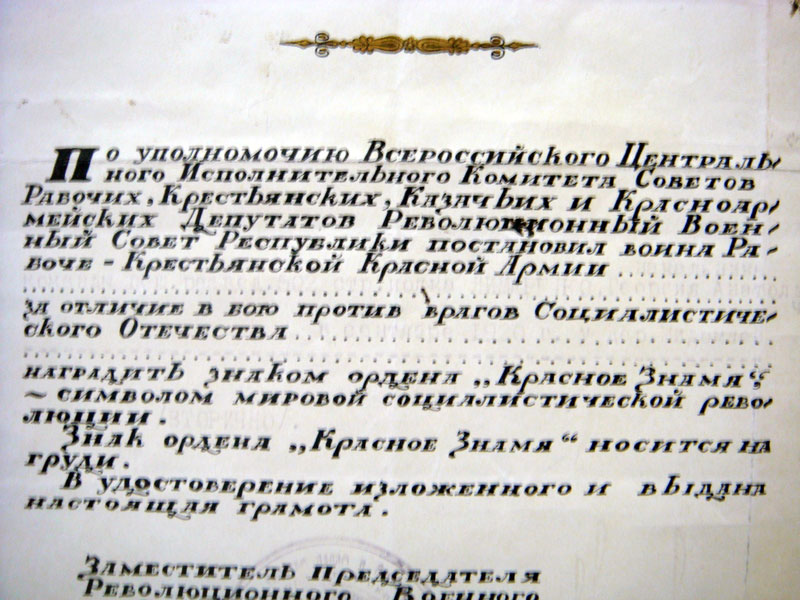 По уполномочию Всероссийского Централь-
ного Исполнительного Комитета Советов
Рабочих, Крестьянских, Казачьих и Красноар-
мейских Депутатов Революционный Воен-
ный Совет Республики постановил воина Ра-
боче-Крестьянской Красной Армии
за отличие в бою против врагов Социалистиче-
ского Отечества
наградить знаком ордена „Красное Знамя“
~ символом мировой социалистической рево-
люции.
Знак ордена „Красное Знамя“ носится на
груди.
В удостоверение изложенного и выдана
настоящая грамота.
Заместитель Председателя
Революционного Военного